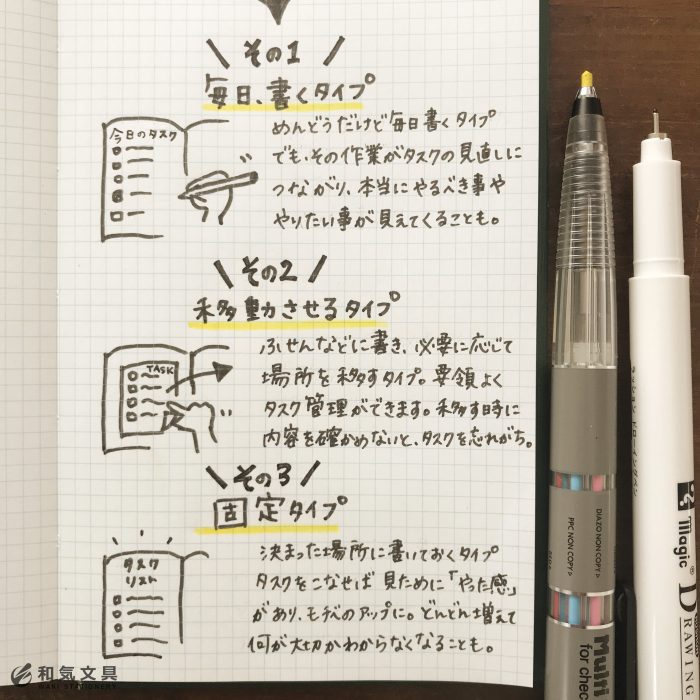 その1
毎日、書くタイプ
今日のタスク
めんどうだけど毎日書くタイプ
でも、その作業がタスクの見直しに
つながり、本当にやるべき事や
やりたい事が見えてくることも。
その2
移動させるタイプ
TASK
ふせんなどに書き、必要に応じて
場所を移すタイプ。要領よく
タスク管理ができます。移す時に
内容を確かめないと、タスクを忘れがち。
その3
固定タイプ
タスク
リスト
決まった場所に書いておくタイプ
タスクをこなせば見ために「やった感」
があり、モチベのアップに。どんどん増えて
何が大切かわからなくなることも。
和気文具
WAKI STATIONERY
DIAZO NON COPY
PPC NON COPY
Multi
for chec
ラッション ドローイングペン
Magic®
DRAWING